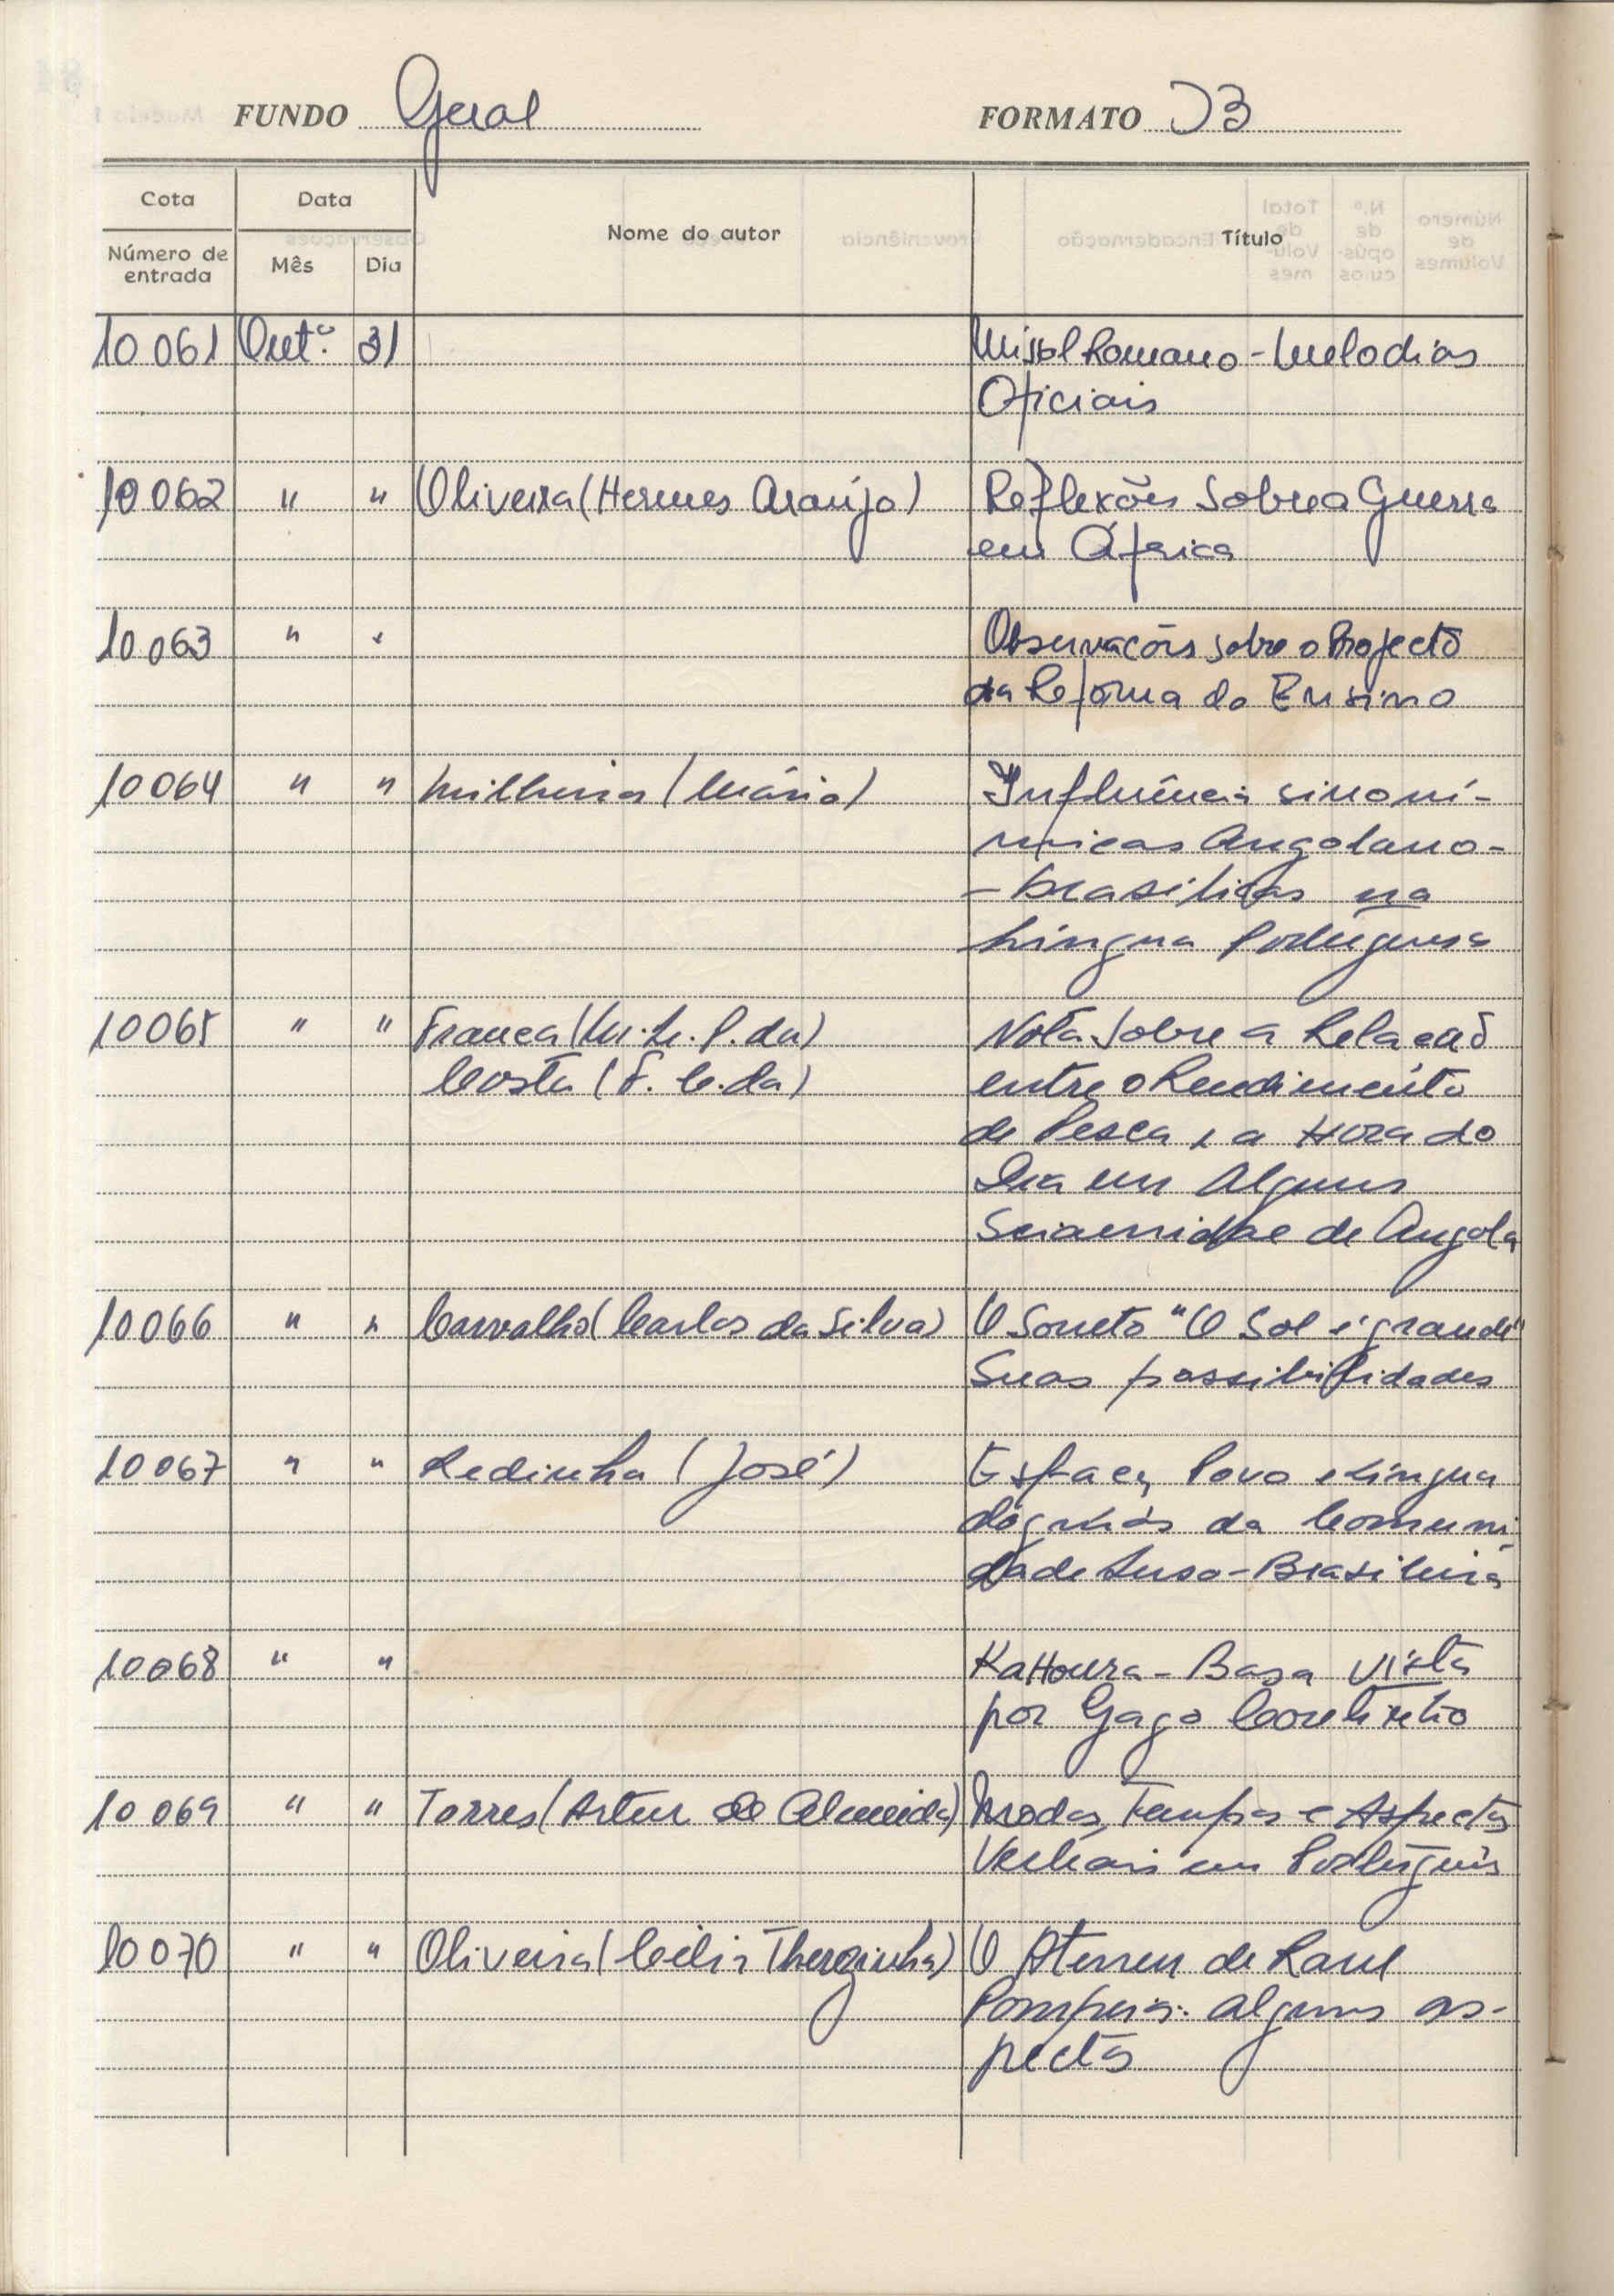 FUNDO Geral FORMATO D3
Cota Data Nome do autor Título
Número de entrada Mês Dia
10 061 Outº. 31 Missal Romano - Melodias
Oficiais
10 062 " " Oliveira (Hermes Araújo) Reflexões sobre a Guerra
em África
10 063 " " Observacões sobre o Projecto
da Reforma do Ensino
10064 " " Milheiros (Mário) Influências sinoní-
micas Angolano-
-brasílicas na
Língua Portuguesa
10065 " " Franca (M. L. P. da) Nota sobre a Relacão
Costa (F. C. da) entre o Rendimento
de Pesca e a Hora do
Dia em Alguns
Sciaenidae de Angola
10066 " " Carvalho (Carlos da Silva) O Soneto "O Sol é grande"
Suas possibilidades
10067 " " Redinha (José) Espaco, Povo e Língua
dógmas da Comuni
dade Luso-Brasileira
10068 " " Kahoura-Basa vista
por Gago Coutinho
10 069 " " Torres (Artur de Almeida) Modos, Tempos e Aspectos
Verbais em Português
10 070 " " Oliveira (Célia Therezinha) O Ateneu de Raul
Pompeia: alguns as-
pectos